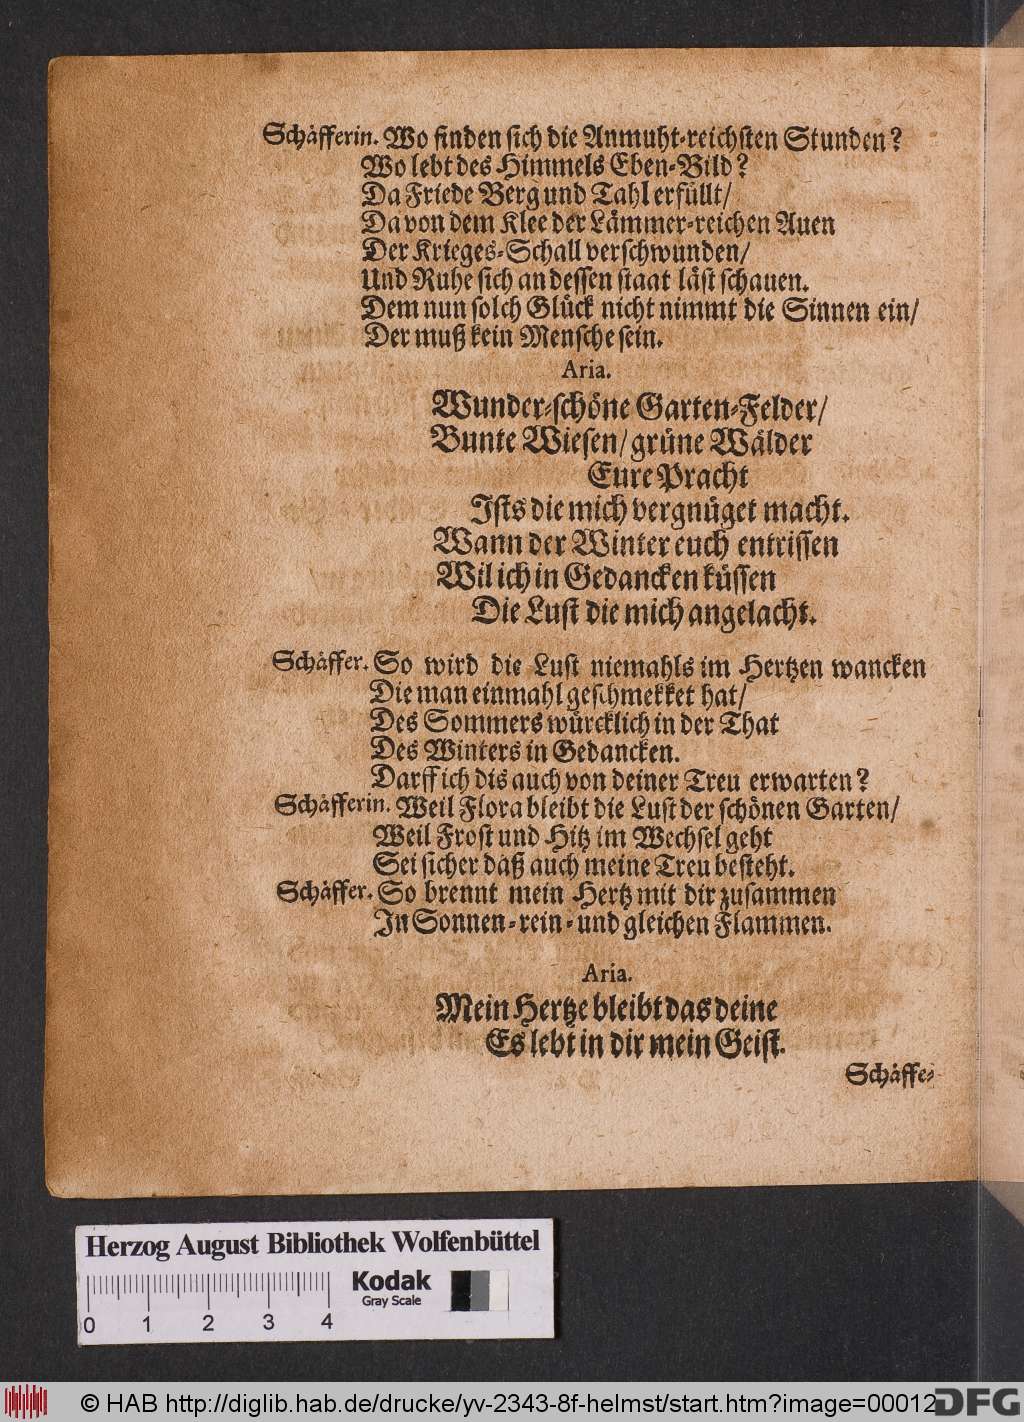 Schäfferin. Wo finden sich die Anmuht-reichsten Stunden?
Wo lebt des Himmels Eben-Bild?
Da Friede Berg und Tahl erfüllt/
Da von dem Klee der Lämmer-reichen Auen
Der Krieges-Schall verschwunden/
Und Ruhe sich an dessen staat läst schauen.
Dem nun solch Glück nicht nimmt die Sinnen ein/
Der muß kein Mensche sein.
Aria.
Wunder-schöne Garten-Felder/
Bunte Wiesen/ grüne Wälder
Eure Pracht
Ists die mich vergnüget macht.
Wann der Winter euch entrissen
Wil ich in Gedancken küssen
Die Lust die mich angelacht.
Schäffer. So wird die Lust niemahls im Hertzen wancken
Die man einmahl geschmekket hat/
Des Sommers würcklich in der That
Des Winters in Gedancken.
Darff ich dis auch von deiner Treu erwarten?
Schäfferin. Weil Flora bleibt die Lust der schönen Garten/
Weil Frost und Hitz im Wechsel geht
Sei sicher daß auch meine Treu besteht.
Schäffer. So brennt mein Hertz mit dir zusammen
In Sonnen-rein-und gleichen Flammen.
Aria.
Mein Hertze bleibt das deine
Es lebt in dir mein Geist.
Schäffe-
Herzog August Bibliothek Wolfenbüttel
Kodak
Gray Scale
0 1 2 3 4
© HAB http://diglib.hab.de/drucke/yv-2343-8f-helmst/start.htm?image=00012
DFG